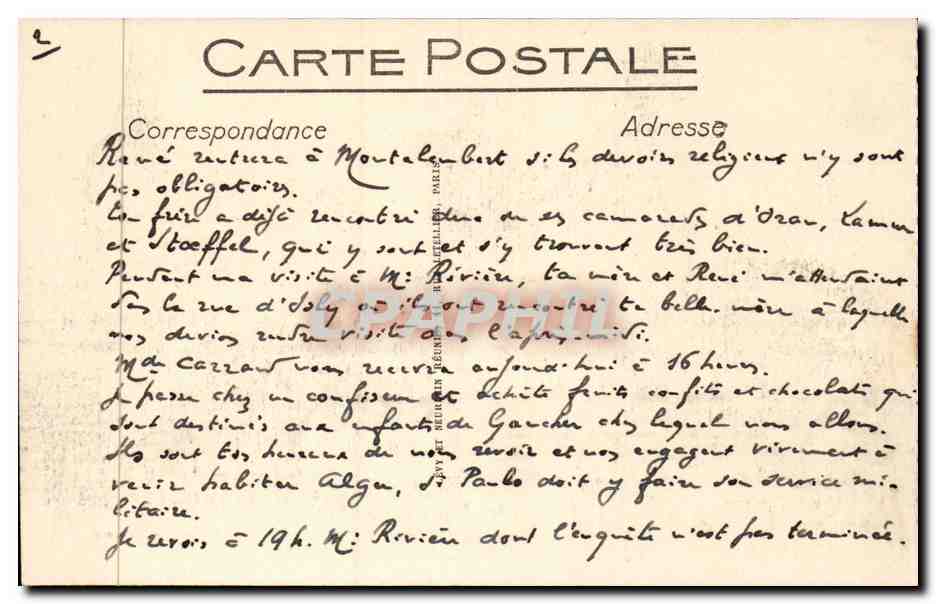 2
CARTE POSTALE
Correspondance
Adresse
René rentrera à Montalembert si les devoirs religieux n'y sont
pas obligatoires.
Ton frère a déjà rencontré deux de ses camarades d'Oran,
et Stoeffel, qui y sont et s'y trouvent très bien.
Pendant ma visite à Mr Rivière, ta mère et René m'attendaient
dans la rue d'Isly où ils ont rencontré ta belle-mère à laquelle
nos devions rendre visite dans l'après-midi.
Mde Carraud vous recevra aujourd'hui à 16 heures.
Je passe chez un confiseur et achète fruits confits et chocolats qui
sont destinés aux enfants de Gaucher chez lequel nous allons.
Ils sont très heureux de nous revoir et nos engagent vivement à
venir habiter Alger, si Paulo doit y faire son service mi-
litaire.
Je revois à 19h. Mr Rivière dont l'enquête n'est pas terminée.
LÉVY ET NEURDEIN RÉUNIS LETELLIER, PARIS
CPAPHIL